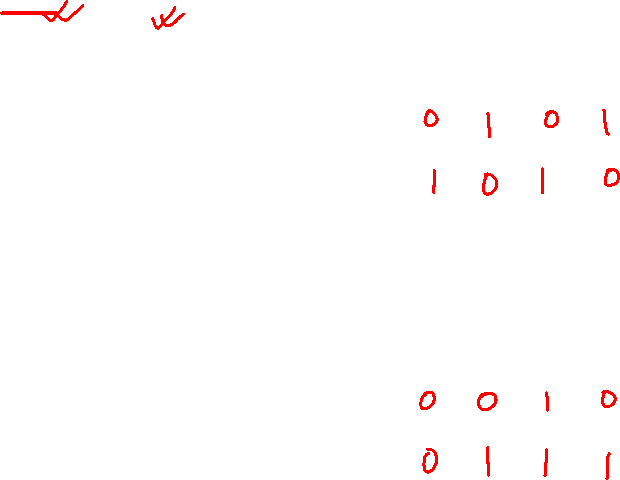 0 1 0 1
1 0 1 0
0 0 1 0
0 1 1 1